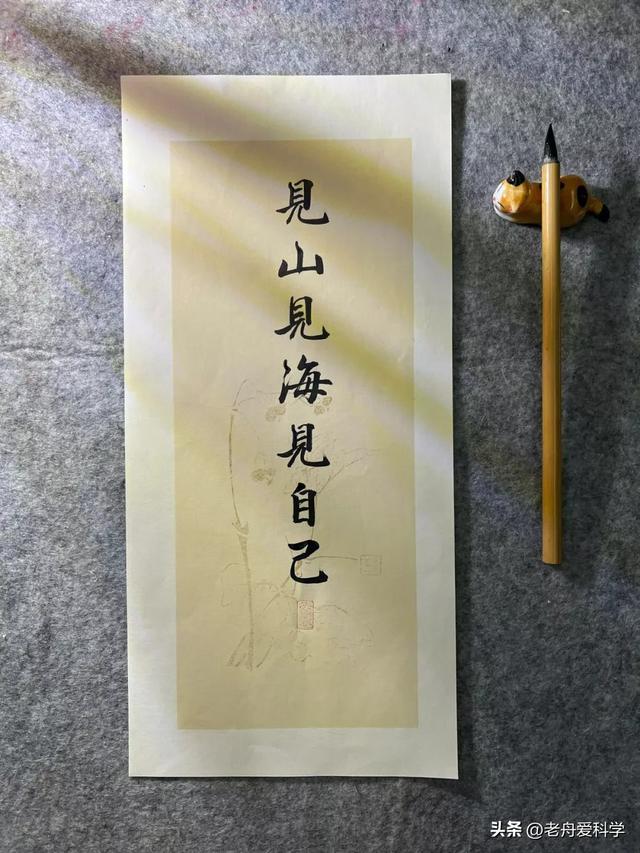 見山見海見自己
头条 @老舟爱科学